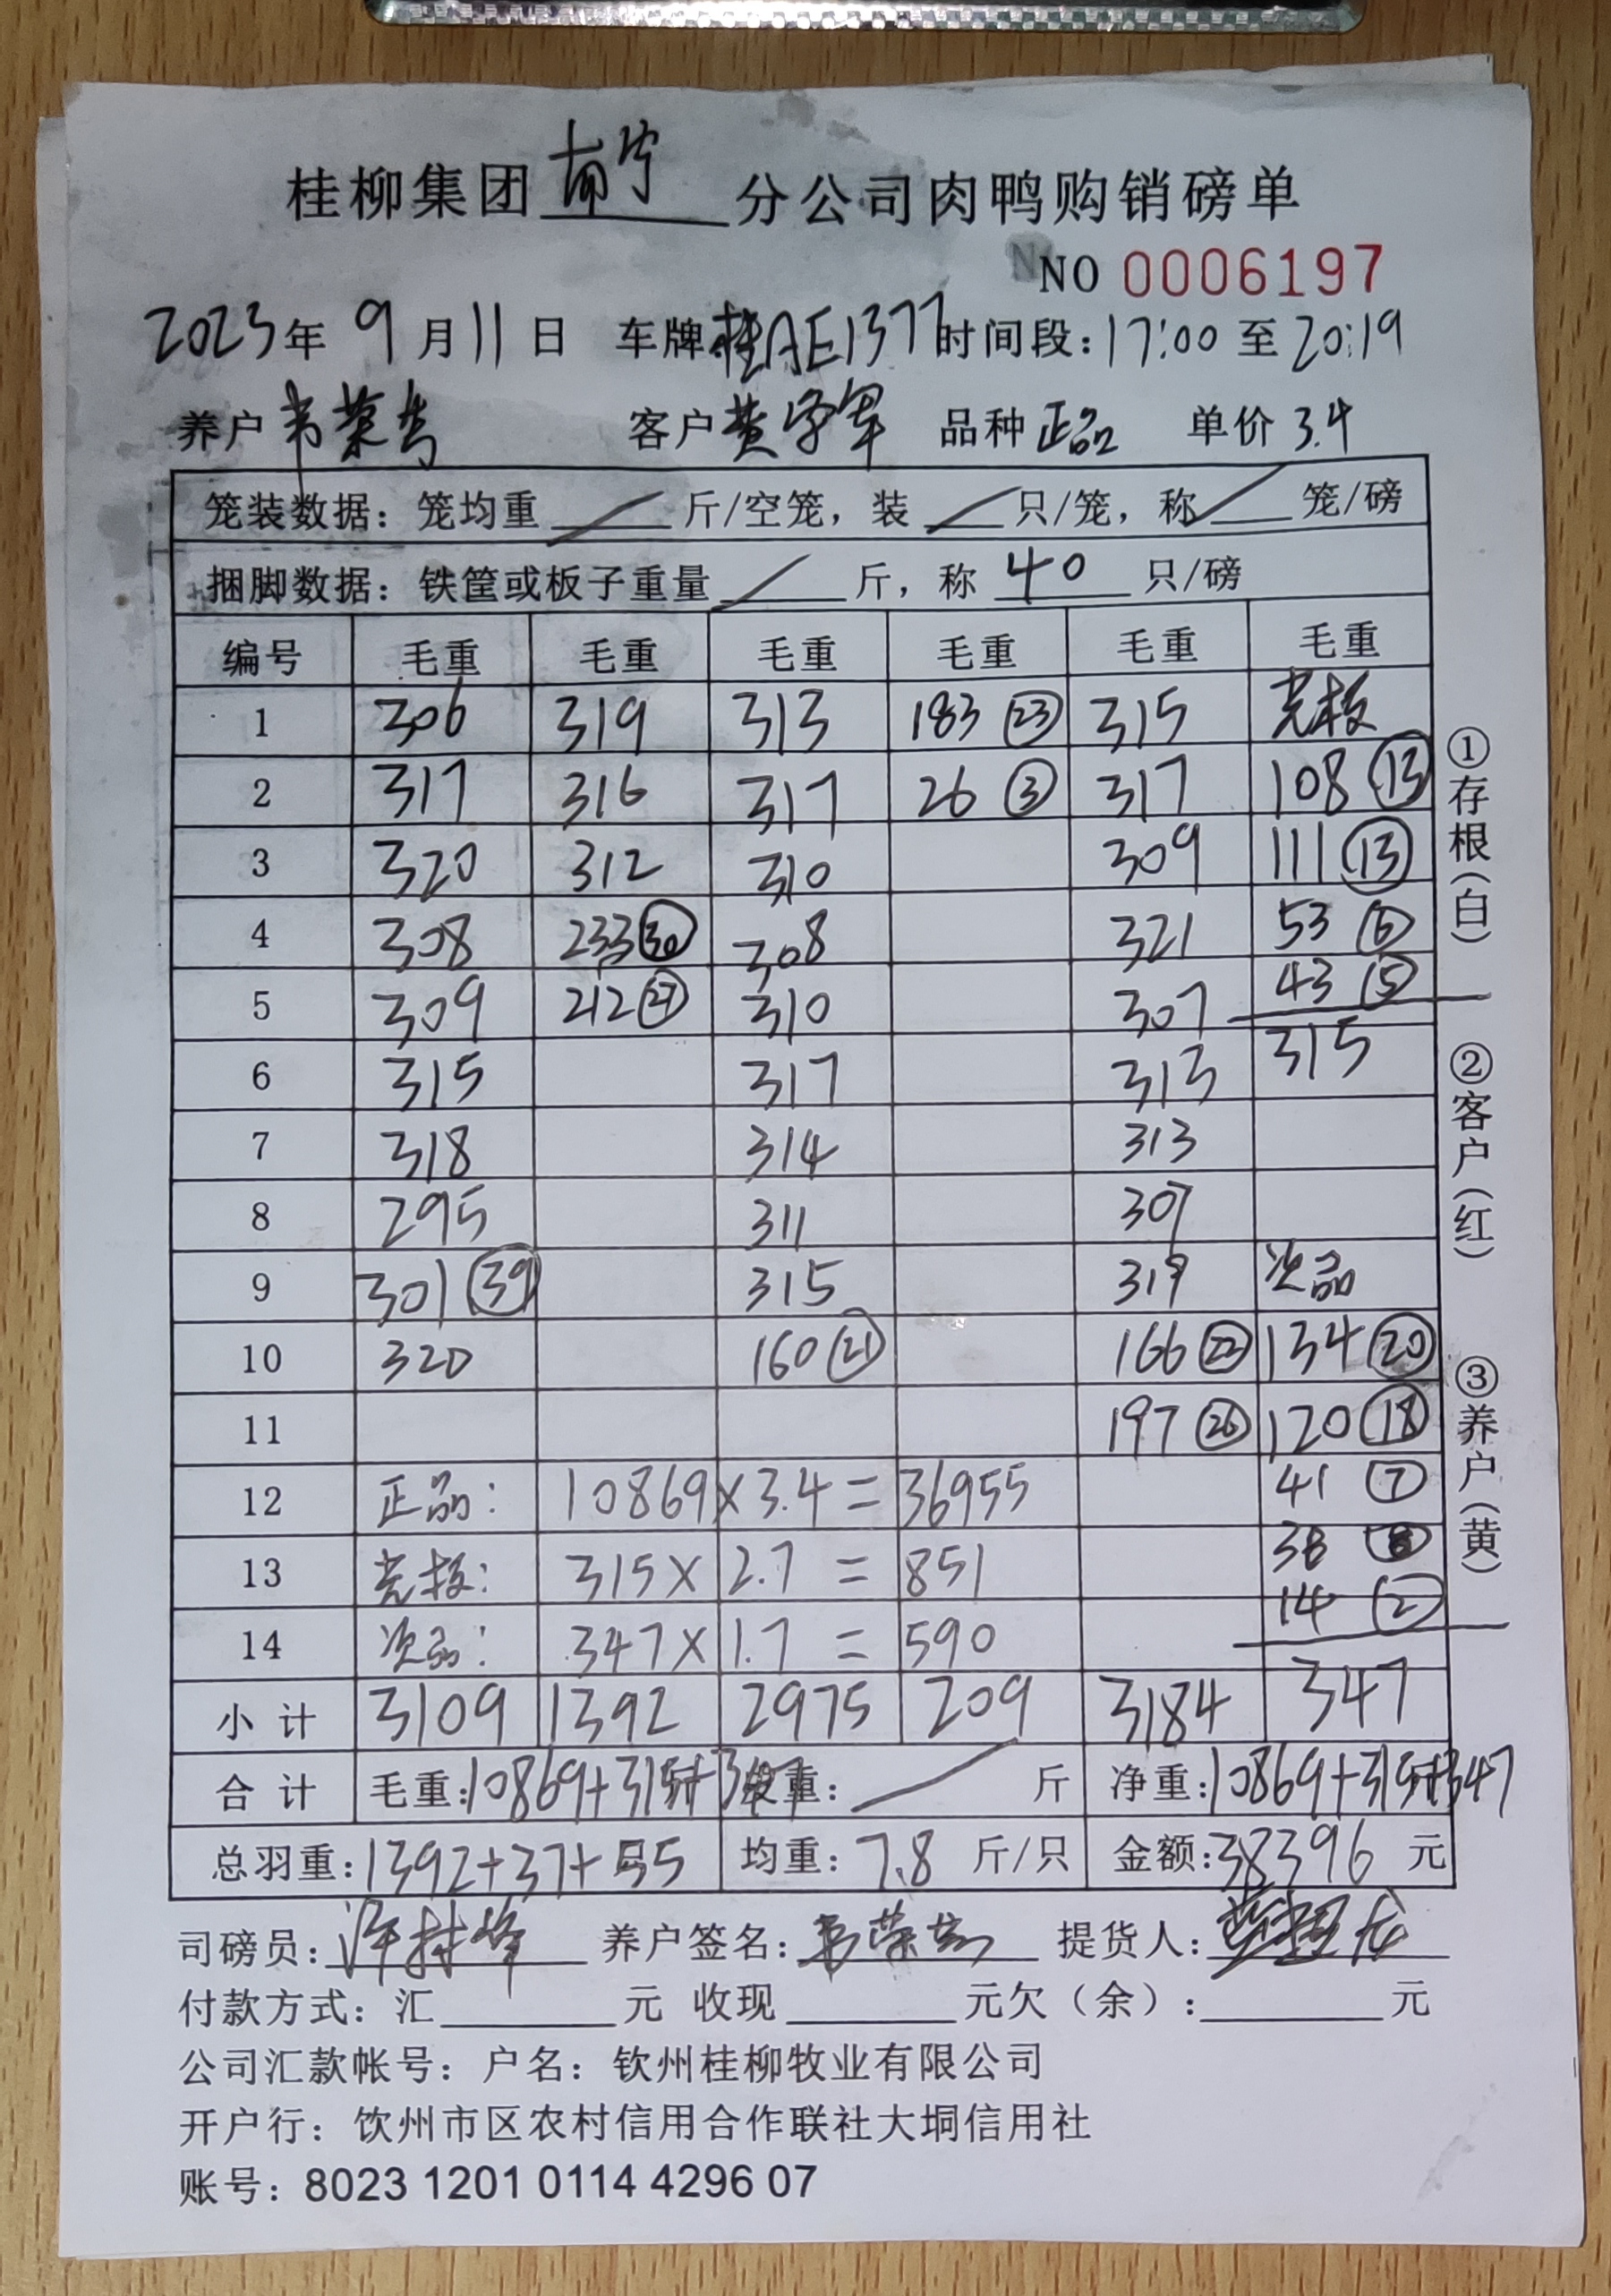 桂柳集团 南宁 分公司肉鸭购销磅单
NO 0006197
2023年 9月11日 车牌:桂AE1377 时间段:17:00 至 20:19
养户 韦荣 客户 黄字军 品种 正品 单价 3.4
笼装数据：笼均重 / 斤/空笼，装 / 只/笼，称 / 笼/磅
捆脚数据：铁筐或板子重量 / 斤，称 40 只/磅
编号 毛重 毛重 毛重 毛重 毛重 毛重
1 306 319 313 183 (23) 315 光板
2 317 316 317 26 (3) 317 108 (13)
3 320 312 310 309 111 (13)
4 308 233 (30) 308 321 53 (6)
5 309 212 (27) 310 307 43 (5)
6 315 317 313 315
7 318 314 313
8 295 311 307
9 301 (39) 315 319 次品
10 320 160 (21) 166 (22) 134 (20)
11 197 (26) 120 (18)
12 正品: 10869×3.4=36955 41 (7)
13 光板: 315×2.7=851 38 (8)
14 次品: 347×1.7=590 14 (2)
小计 3109 1392 2975 209 3184 347
合计 毛重:10869+315+347 皮重: / 斤 净重:10869+315+347
总羽重:1392+37+55 均重:7.8 斤/只 金额:38396 元
司磅员: 养户签名: 韦荣 提货人:
付款方式：汇 元 收现 元欠（余）: 元
公司汇款帐号：户名：钦州桂柳牧业有限公司
开户行：饮州市区农村信用合作联社大垌信用社
账号：8023 1201 0114 4296 07
①存根(白)
②客户(红)
③养户(黄)